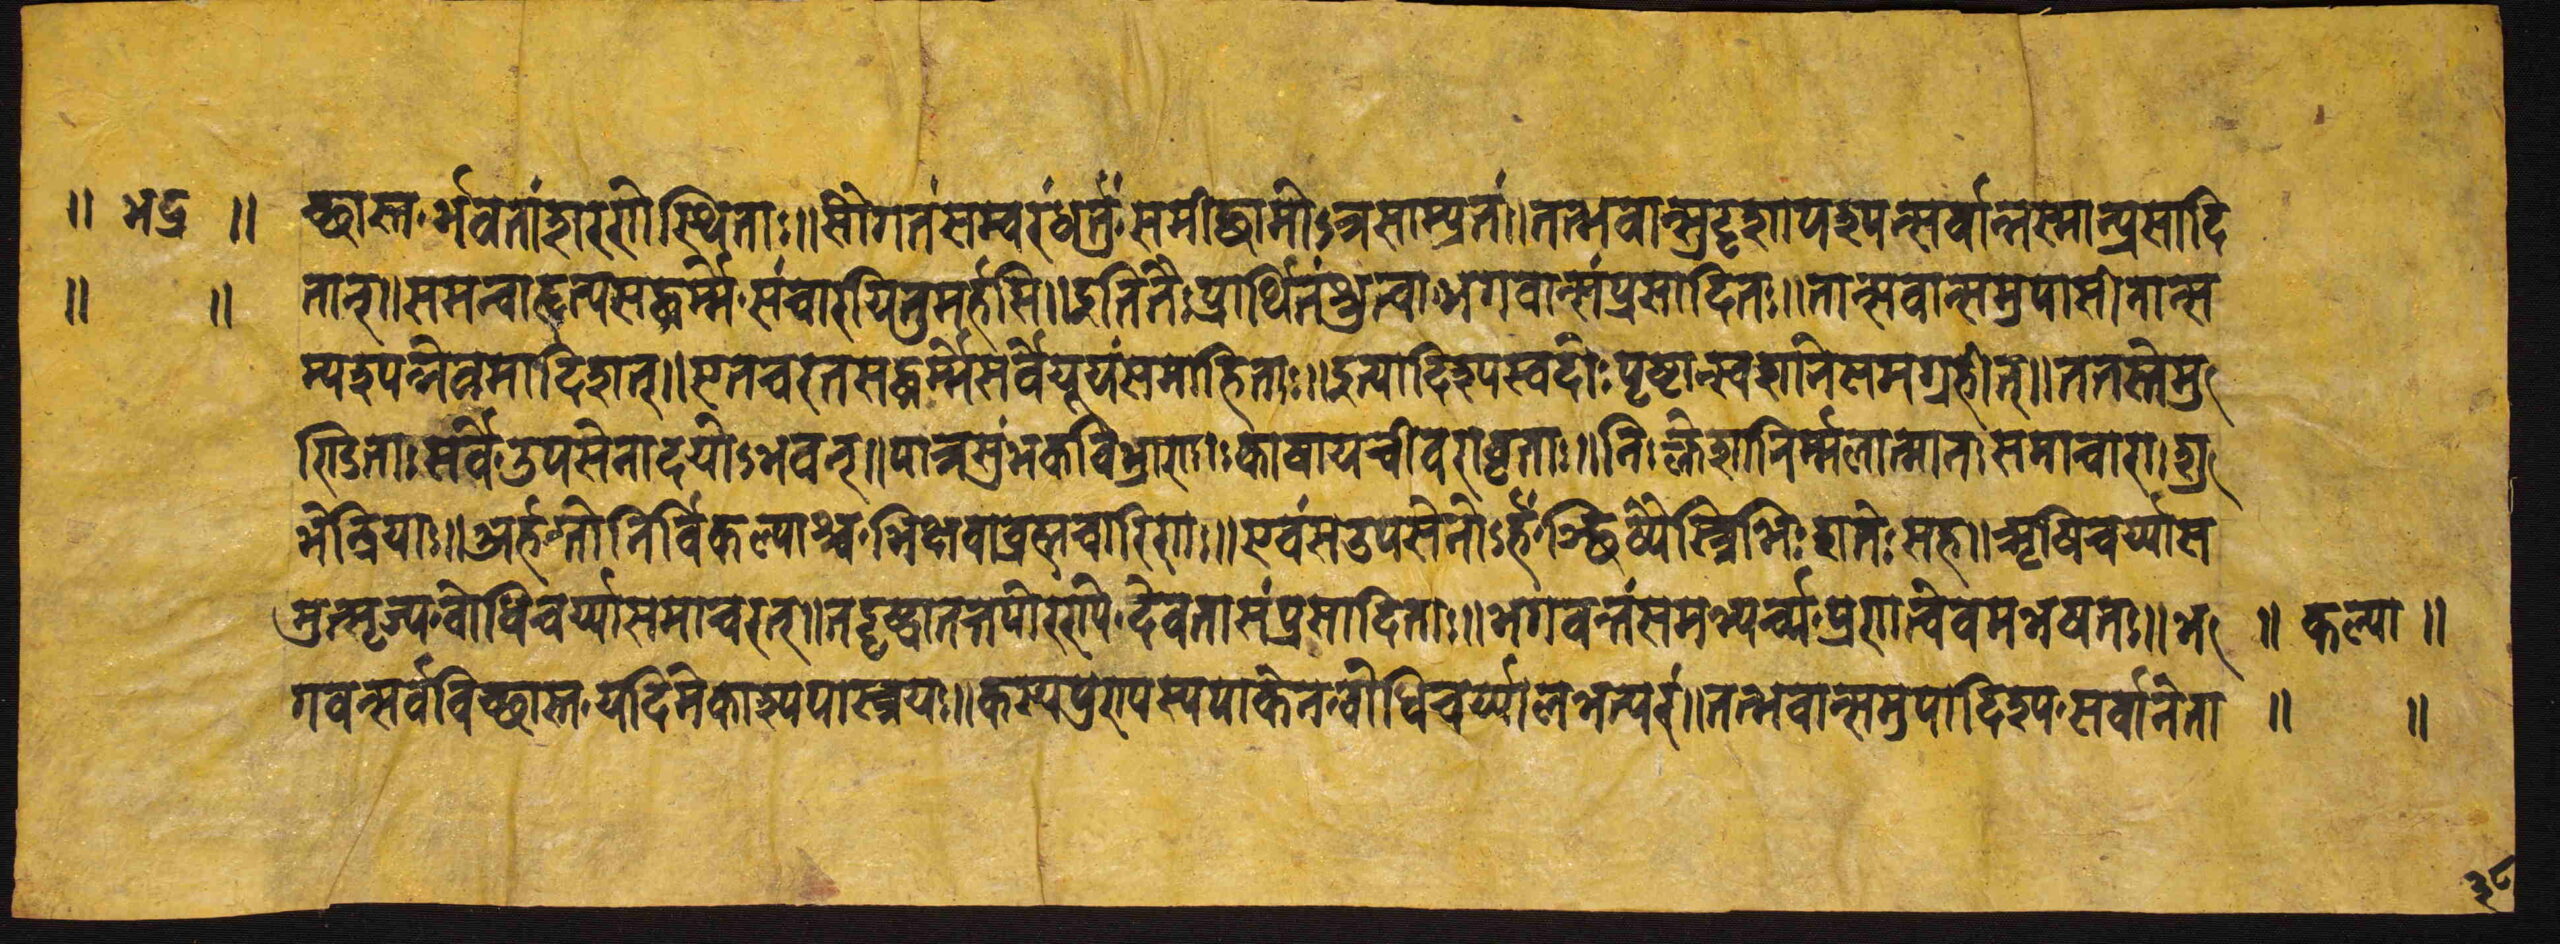 ॥ भद्र ॥ च्छास्त र्भवतां शरणे स्थिताः ॥ सौगतं सम्वरं धर्तुं समीच्छामोऽत्र साम्प्रतं ॥ तद्भवान्सुदृशा पश्यन्सर्वानस्मान्प्रसादि
॥ ॥ तान् ॥ समन्वाहृत्य सद्धर्म्मे संचारयितुमर्हसि ॥ इति तैः प्रार्थितं श्रुत्वा भगवान्संप्रसादितः ॥ तान्सर्वान्समुपासीनान्स
म्पश्यन्नेवमादिशत् ॥ एत चरत सद्धर्म्मे सर्वे यूयं समाहिताः ॥ इत्यादिश्य स्वदोः पृष्टान्स्वशानि समग्रहीत् ॥ ततस्ते मु
ण्डिताः सर्वे उपसेनादयोऽभवन् ॥ पात्रसुंभकविभ्राणाः काषायचीवरावृताः ॥ निःक्लेशा निर्म्मलात्मानः समाचारा शु
भेन्द्रियाः ॥ अर्हन्तो निर्विकल्पाश्च भिक्षवो ब्रह्मचारिणः ॥ एवं स उपसेनोऽर्हं च्छिष्यैस्त्रिभिः शतैः सह ॥ ऋषिचर्य्यां स
मुत्सृज्य बोधिचर्य्यां समाचरत् ॥ तद्दृष्ट्वा तत्तपोरण्ये देवता संप्रसादिताः ॥ भगवन्तं समभ्यर्च्य प्रणत्वैवमभषतः ॥ भ ॥ कल्पा ॥
गवन्सर्वविच्छास्त यदिमे काश्यपास्त्रयः ॥ कस्य पुण्यस्य पाकेन बोधिचर्य्यां लभन्यरं ॥ तद्भवान्समुपादिश्य सर्वानेता ॥ ॥
३८